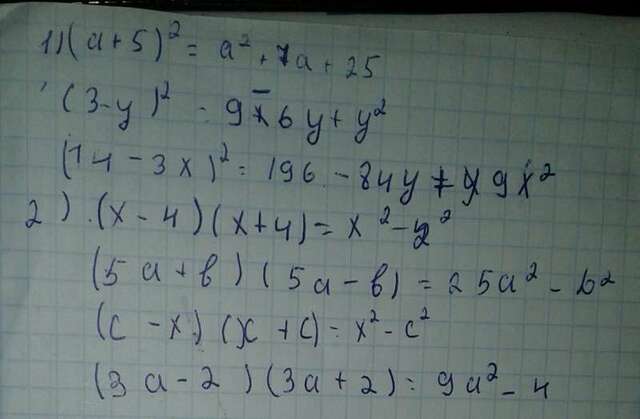 1) (a+5)² = a² + 7a + 25
(3-y)² = 9 - 6y + y²
(14 - 3x)² = 196 - 84y + 9x²
2) (x - 4)(x+4) = x² - y²
(5a + b)(5a - b) = 25a² - b²
(c - x)(x + c) = x² - c²
(3a - 2)(3a + 2) = 9a² - 4